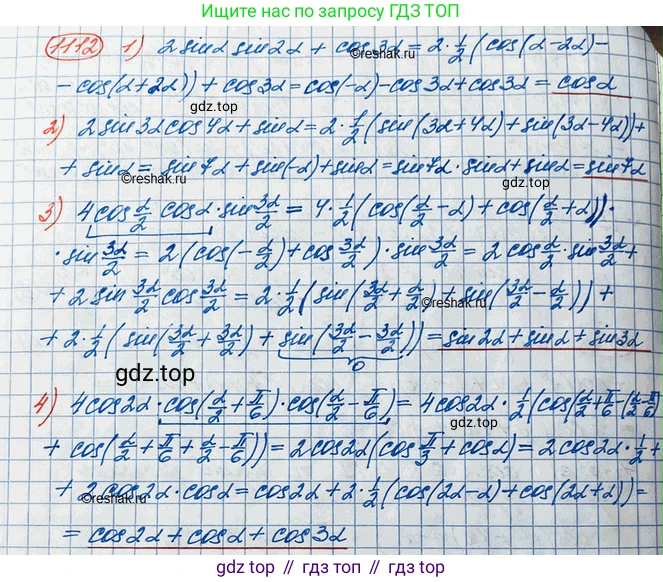 Ищите нас по запросу ГДЗ ТОП
1112 1) 2 sinα sin2α + cos3α = 2·1/2 (cos(α-2α) -
- cos(α+2α)) + cos3α = cos(-α) - cos3α + cos3α = cosα
gdz.top
2) 2 sin3α cos4α + sinα = 2·1/2 (sin(3α+4α) + sin(3α-4α)) +
+ sinα = sin7α + sin(-α) + sinα = sin7α · sinα + sinα = sin7α
©reshak.ru
©reshak.ru
©reshak.ru
3) 4 cos α/2 cosα · sin 3α/2 = 4·1/2 (cos(α/2 - α) + cos(α/2 + α)) ·
· sin 3α/2 = 2 (cos(-α/2) + cos 3α/2) · sin 3α/2 = 2 cos α/2 · sin 3α/2 +
+ 2 sin 3α/2 cos 3α/2 = 2·1/2 (sin(3α/2 + α/2) + sin(3α/2 - α/2)) +
©reshak.ru
+ 2·1/2 (sin(3α/2 + 3α/2) + sin(3α/2 - 3α/2)) = sin2α + sinα + sin3α
0
гдз.top
4) 4 cos2α · cos(α/2 + π/6) · cos(α/2 - π/6) = 4 cos2α · 1/2 (cos(α/2 + π/6 - (α/2 - π/6)
+ cos(α/2 + π/6 + α/2 - π/6)) = 2 cos2α (cos π/3 + cosα) = 2 cos2α · 1/2 +
+ 2 cos2α · cosα = cos2α + 2·1/2 (cos(2α-α) + cos(2α+α)) =
©reshak.ru
©reshak.ru
= cos2α + cosα + cos3α
gdz.top // гдз.топ // гдз.top